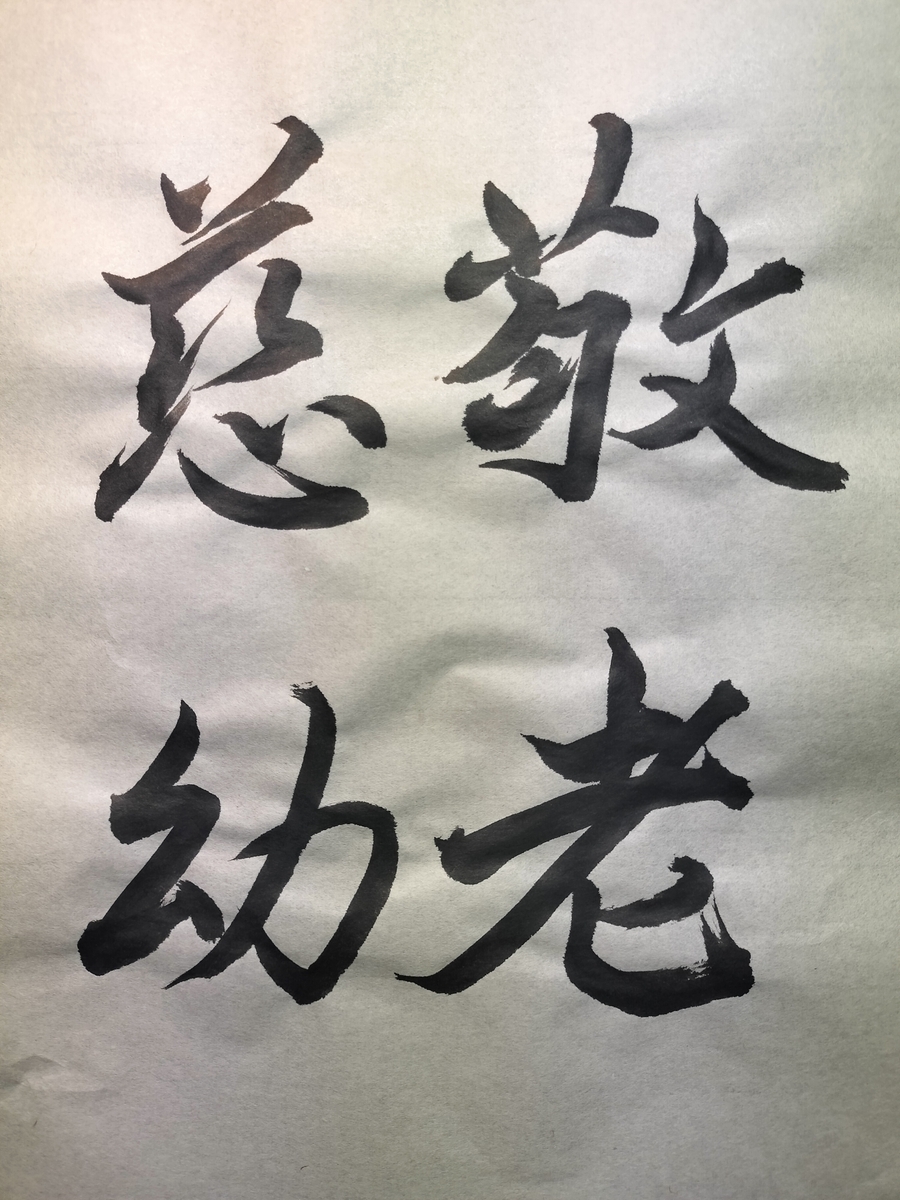 敬老
慈幼